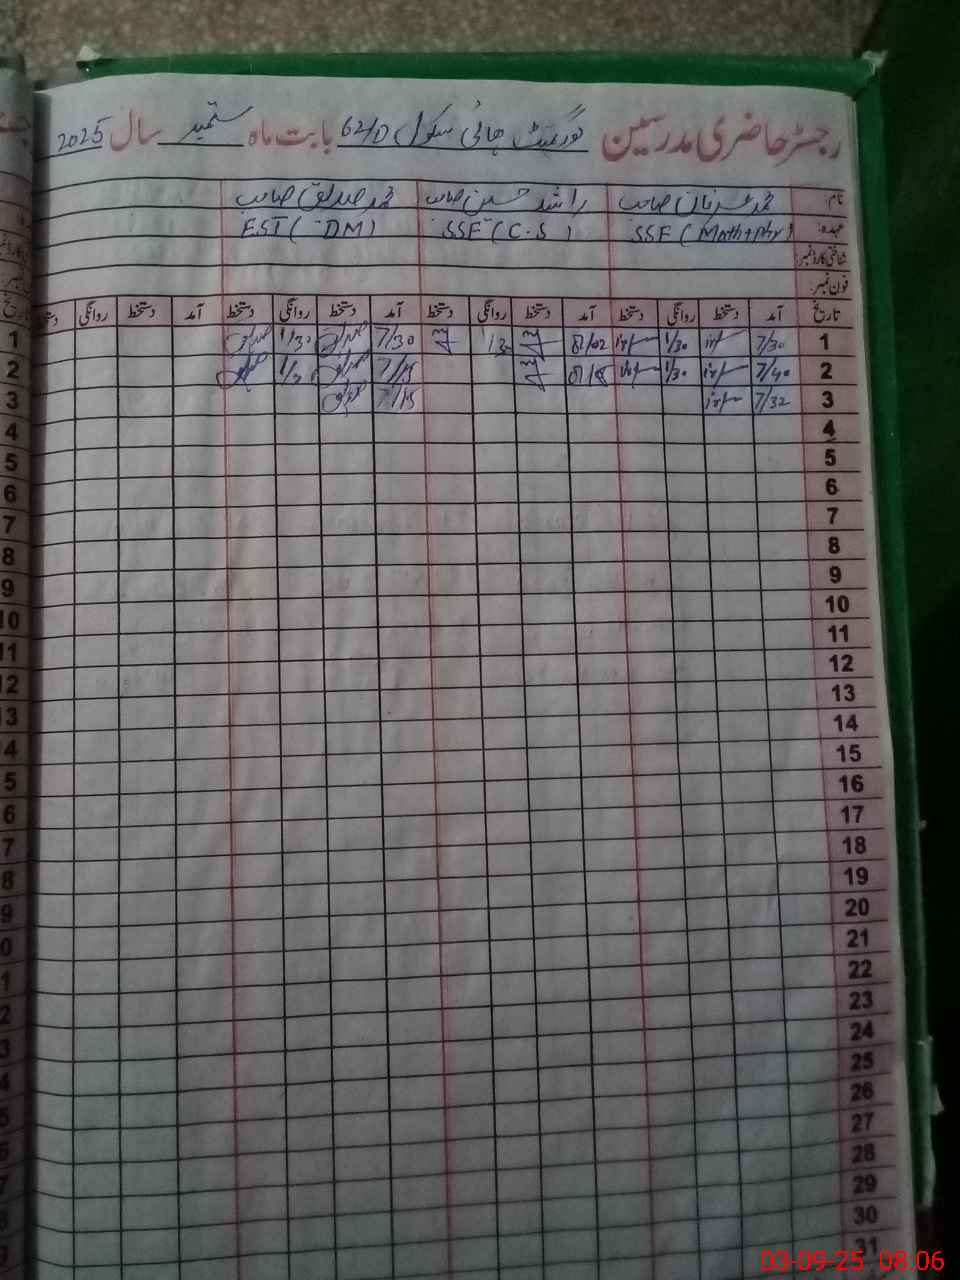 رجسٹر حاضری مدرسین گورنمنٹ ہائی سکول 62/D بابت ماہ ستمبر سال 2025
نام: محمد عرفان صاحب راشد حسین صاحب محمد صدیق صاحب
عہدہ: SSE (Math+Phy) SSE (C.S) EST (DM)
شناختی کارڈ نمبر:
فون نمبر:
تاریخ آمد دستخط روانگی دستخط آمد دستخط روانگی دستخط آمد دستخط روانگی دستخط آمد دستخط روانگی
1 7/30 1/30 8/02 7/30 1/30
2 7/40 1/30 8/15 7/15
3 7/32 7/15
4
5
6
7
8
9
10
11
12
13
14
15
16
17
18
19
20
21
22
23
24
25
26
27
28
29
30
31
03-09-25 08.06